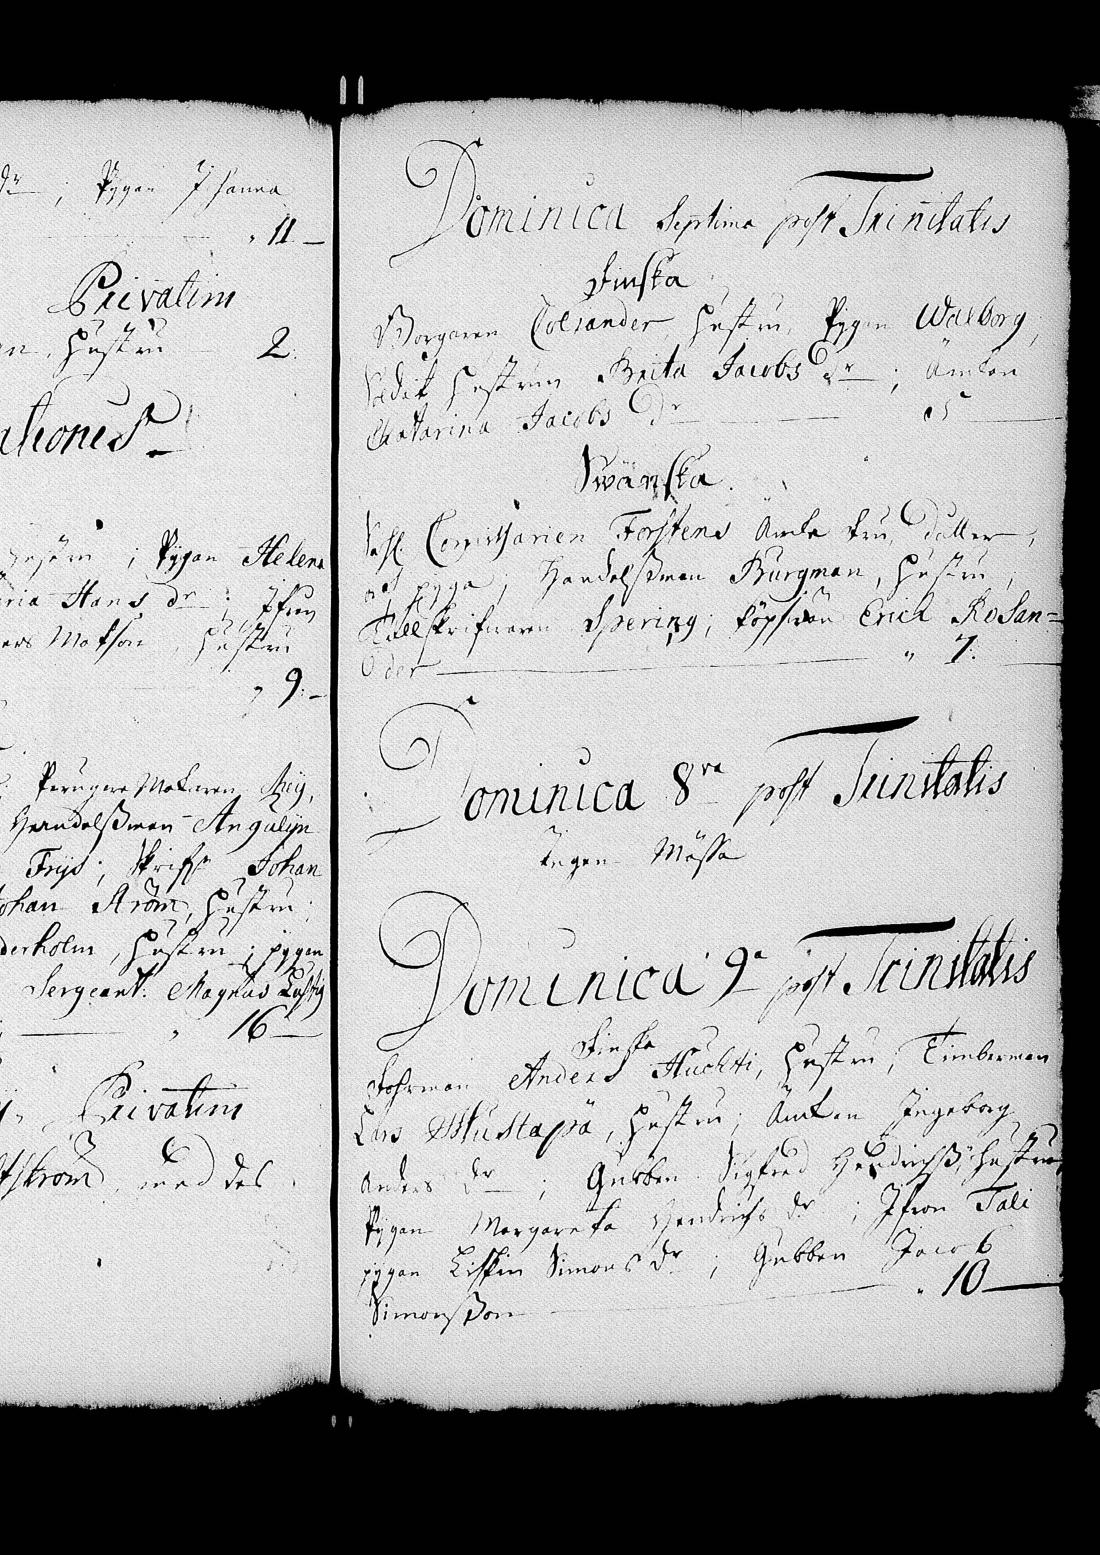 dr ; Pygan Johanna
" 11 —
Privatim
hustru 2:
ationes
hustru ; Pygan Helena
aria Hans dr ; Jfrun
ers Matson, hustru
" 9: —
Peruquemakaren Meij,
Handelßman Angulijn
Frijs ; Skriff Johan
Johan Ström, hustru ;
derholm, hustru ; pygan
Sergeant: Magnus Lustig
" 16 —
Privatim
ström, med des
Dominica Septima post Trinitatis
Finska
Borgaren Tolsander, hustru, Pygan Walborg,
Soldat hustrun Brita Jacobs dr ; Änkan
Chatarina Jacobs dr — " 5 —
Swänska
Sahl. Forstens Änke fru, dotter,
och pyga ; Handelßman Burgman, hustru ;
Tullskrifwaren Spering ; köpswän Erich Rosan=
der — " 7: —
Dominica 8va post Trinitatis
Ingen Mässa
Dominica 9a post Trinitatis
Finska
Fohrman Anders Huchti, hustru ; Timberman
Lars Mustapä, hustru ; Änkan Ingeborg
Anders dr ; Gubben Sigfred Hendrichß, hustru
Pygan Margareta Hendrichs dr ; Jfron Tali
pygan Liskin Simons dr ; Gubben Jacob
Simonßon — " 10 —